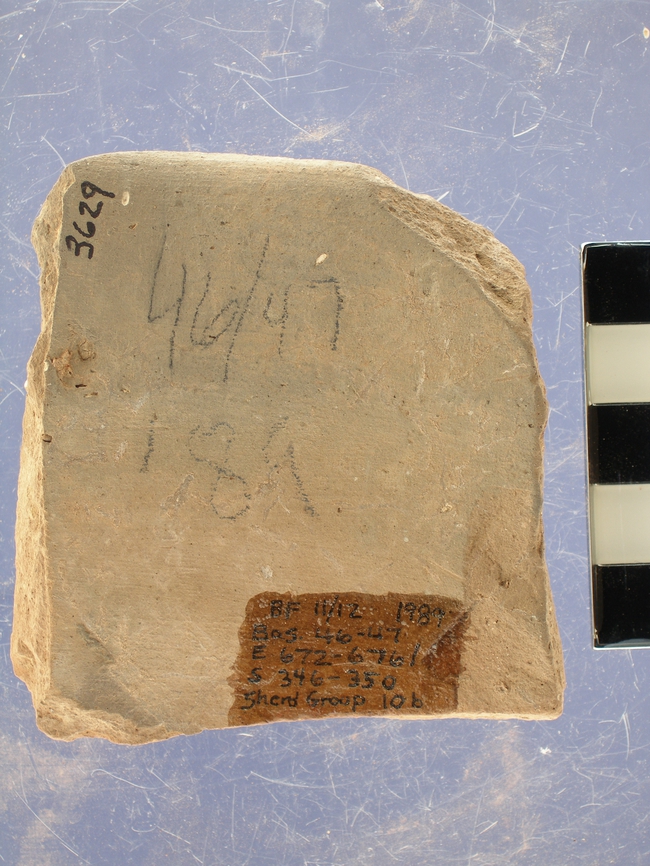 3629
46/47
BF 11/12 1989
Bas 46-47
E 672-676/
S 346-350
Sherd Group 10b